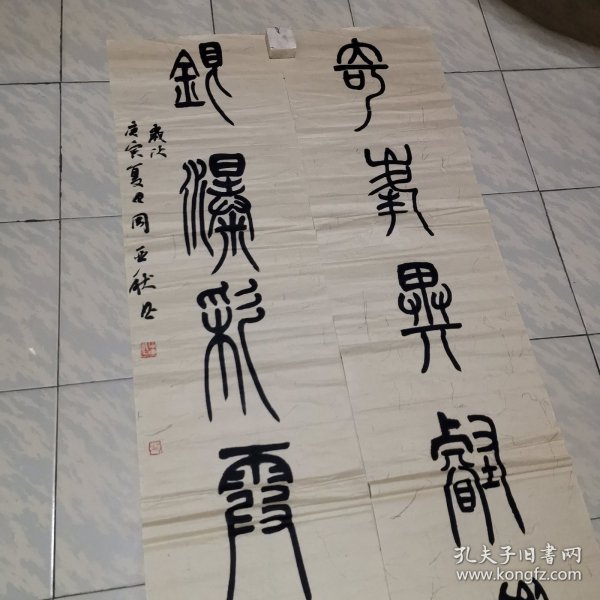 奇峯異壑
銀瀑彩霞
歲次
庚寅夏日周亚
孔夫子旧书网
www.kongfz.com